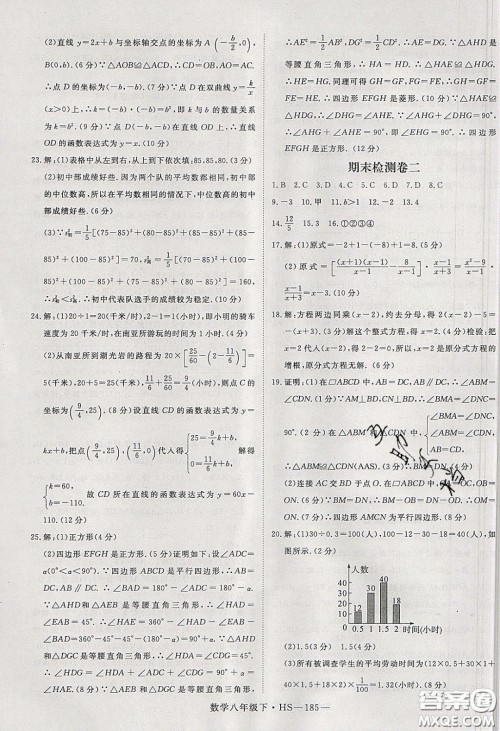 (2)直线 y=2x+b 与坐标轴交点的坐标为 A(-b/2,0),
B(0,b).(6分) ∵△AOB≌△ACD,∴CD=OB,AO=AC.
∴点 D 的坐标为(-b,-b).(7分) ∵点 D 在双曲线 y=k/x
(x>0)上,∴k=(-b)·(-b)=b².即 k 与 b 的数量关系
为 k=b².(8分) ∴直线 OD 上,∴直线 OD 的
函数表达式为 y=x.(10分)
23.解:(1)表格中从左到右,从上到下依次应填:85,85,80.(3分)
(2)初中部成绩好些.因为两个队的平均数都相同,初中部的
中位数高,所以在平均数相同的情况下,中位数高的初中部
成绩好些.(6分)
[(75-85)²+(80-85)²+(85-85)²+(85-
85)²+(100-85)²]=70,
[(70-85)²+(100-85)²
+(100-85)²+(75-85)²+(80-85)²]=160,
∴初中代表队选手的成绩较为稳定.(10分)
24.解:(1)20÷1=20(千米/时),2-1=1(小时),即小明的骑车
速度为20千米/时,在南亚所游玩的时间为1小时.(4分)
(2)从南亚所到湖光岩的路程为 20×[25/60-(2-11/6)]=5
(千米),20+5=25(千米),11/6+25/60=9/4(小时),则点 C 的
坐标为(9/4,25).(8分)设直线 CD 的函数表达式为 y=
kx+b,把点(9/4,25),点(11/6,0)代入得{25=9/4k+b, 0=11/6k+b,解得
{k=60, b=-110. 故 CD 所在直线的函数表达式为 y=60x-
110.(12分)
25.解:(1)四边形 EFGH 是正方形.(2分)
(2)四边形 EFGH 是正方形.(5分)证明如下,设∠ADC=α
(0°<α≤90°).∵四边形 ABCD 是平行四边形,∴AB
=DC,∴∠BAD=180°-∠ADC=180°-α.
∵△AHD 和△AEB 都是等腰直角三角形,∴∠HAD=
∠EAB=45°.∴∠HAE=360°-∠HAD-∠EAB-
∠BAD=360°-45°-45°-(180°-α)=90°+α.∵△AHD
和△DGC 是等腰直角三角形,∴∠HDA=∠CDG=
45°.∴∠HDG=∠HDA+∠ADC+∠CDG=90°+α=
∠HAE.(8分) ∵△AEB 和△DGC 是等腰直角三角形,
∴AE²=1/2AB²,DG²=1/2DC².∴AE=DG.∵△HAD 是
等腰直角三角形,∴HA=HD.∴△HAE≌△HDG.
∴HE=HG.同理可得 GH=GF,FG=FE,∴GH=GF=
EF=HE.∴四边形 EFGH 是菱形.(10分) ∵△HAE≌
△HDG,∴∠DHG=∠AHE.∵∠AHD=∠AHG+
∠DHG=90°,∴∠EHG=∠AHG+∠AHE=90°.∴四
边形 EFGH 是正方形.(12分)
期末检测卷二
9.-3 10.甲 11.b>1 12.-2 13.4
14.12/5 15.3 16.①②③④
17.解:(1)原式=-1-1+1-1-2=-4.(4分)
(2)原式=[(x+1)(x-1)/(x-1)-8/(x-1)]·(x-1)/(x-3)=(x²-9)/(x-1)·
(x-1)/(x-3)=x+3.(8分)
18.解:方程两边同乘,约去分母,得 2(x-2)-5
=-(x+3).(3分)解这个整式方程,得 x=2.(4分)检验:把
x=2 代入(x-2),得 x-2=0.(5分) ∴x=2 是原分式方程的
增根,原分式方程无解.(6分)
19.证明:(1)在▱ABCD 中,AB=CD,AB∥DC.∴∠ABM=
∠CDN.(1分) ∵AM⊥BD,CN⊥BD,∴∠AMB=∠DNC=
90°.(2分) 在△ABM 和△CDN 中,{∠BMA=∠DNC, ∠ABM=∠CDN, AB=CD,
∴△ABM≌△CDN(AAS).(3分) ∴BM=DN.(4分)
(2)连接 AC 交 BD 于点 O.在▱ABCD 中,OA=OC,OB=
OD.(5分) ∵BM=DN,∴OB-BM=OD-DN.∴OM=
ON.(7分) ∴四边形 AMCN 为平行四边形.(8分)
20.解:(1)30÷30%=100(人),100-12-30-18=40(人),如
图所示.(2分)
人数
40
30
20
10
0
12
30
40
18
0.5 1 1.5 2 时间(小时)
(2)1.5(3分) 1.5(4分)
(3)所有被调查学生的平均劳动时间为(12×0.5+30×1+
40×1.5+18×2)×1/100=1.32(小时).(8分)
数学八年级下·HS—185—